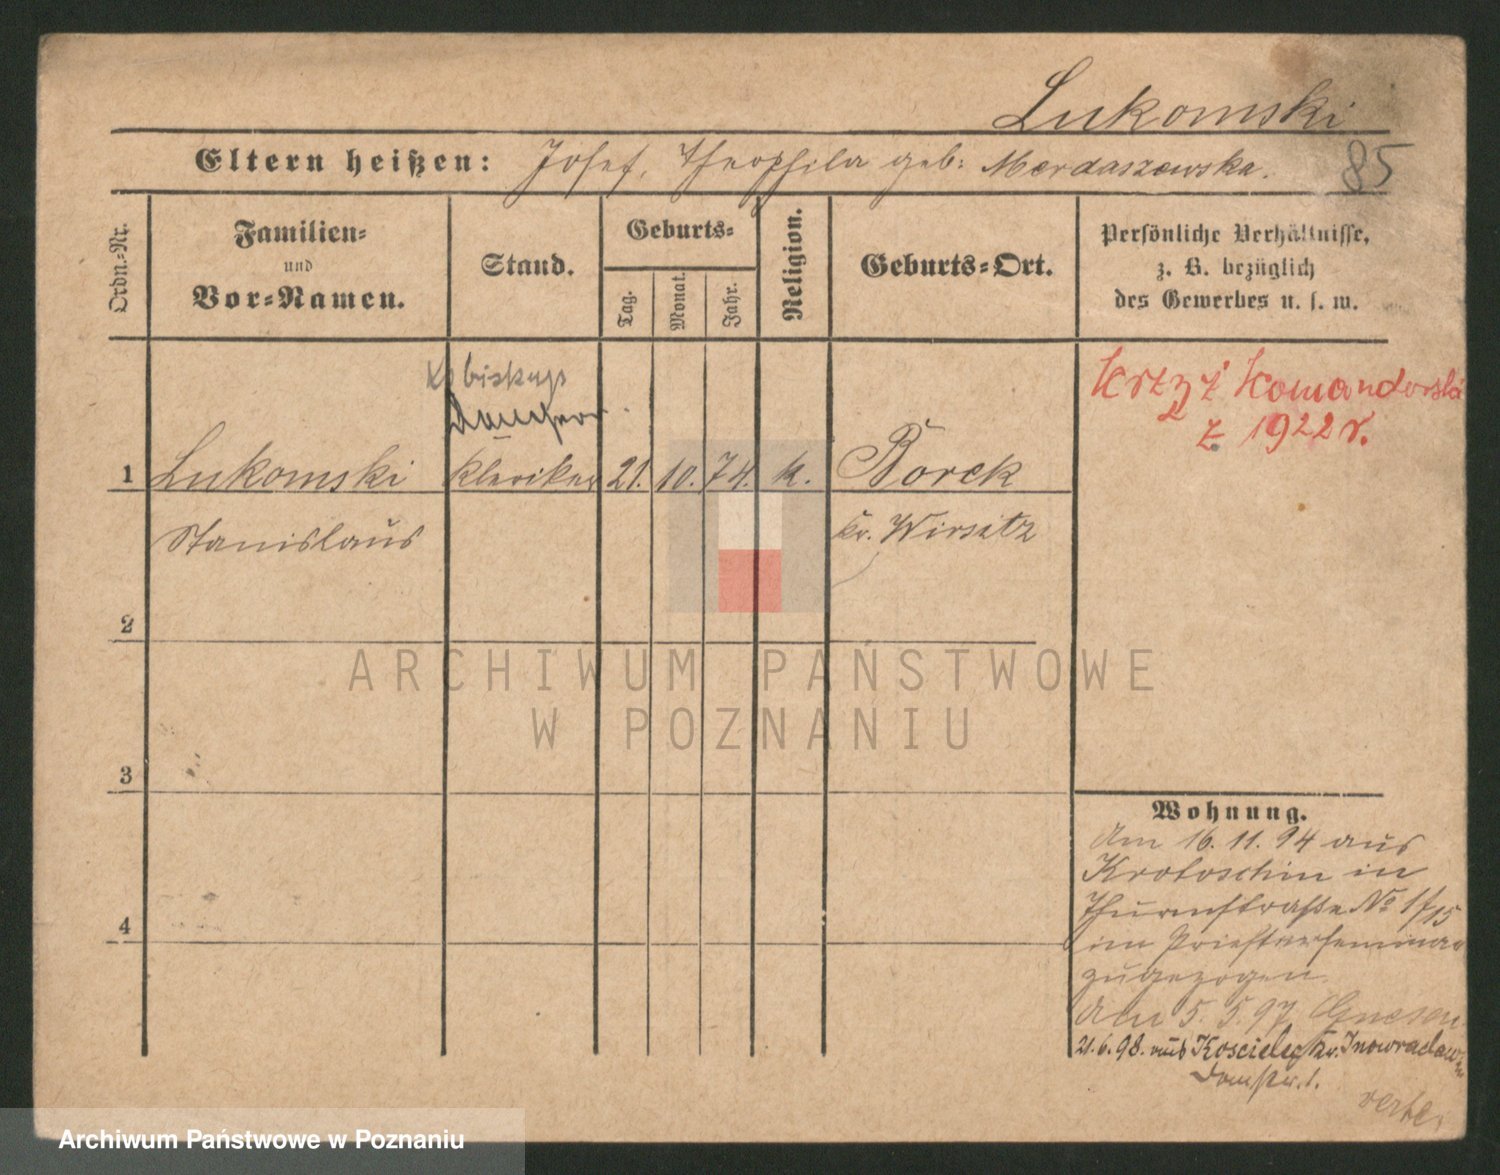 Lukomski
85
Eltern heißen: Josef, Theophila geb: Merdaszewska.
Ordn.-Nr.
Familien-
und
Vor-Namen.
Stand.
Geburts-
Tag.
Monat.
Jahr.
Religion.
Geburts-Ort.
Persönliche Verhältnisse,
z. B. bezüglich
des Gewerbes u. s. w.
biskup
Krzyż Komandorski
z 1922 r.
1 Lukomski Kleriker 21. 10. 74. k. Borek
Stanislaus Kr. Wirsitz
2
3
4
Wohnung.
Am 16. 11. 94 aus
Krotoschin in
Thurmstraße No
im Priesterseminar
zugezogen
Am 5. 5. 97 Gnesen
21. 6. 98. aus Koscielec Kr. Inowraclaw
Domstr. 1.
verte.
ARCHIWUM PAŃSTWOWE
W POZNANIU
Archiwum Państwowe w Poznaniu